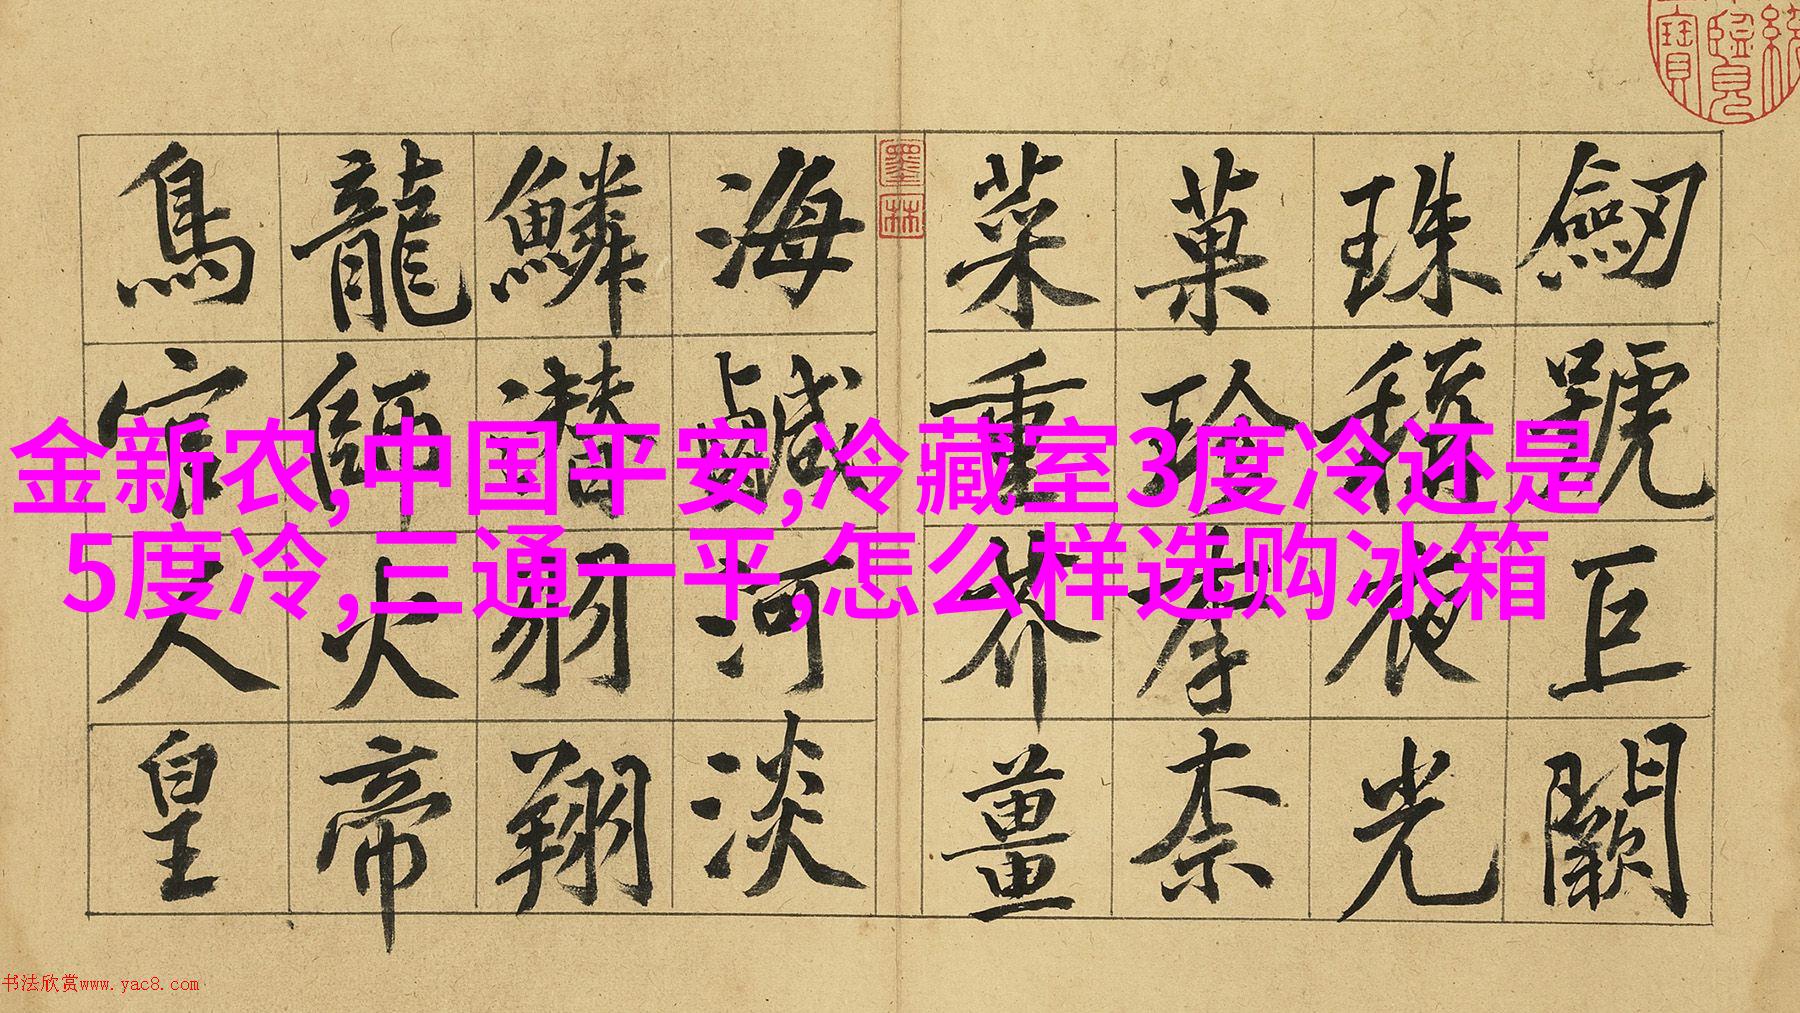 劒號巨闕
珠稱夜光
菓珍李柰
菜重芥薑
海鹹河淡
鱗潛羽翔
龍師火帝
鳥官人皇
墨林
金新农,中国平安,冷藏室3度冷还是
5度冷,三通一平,怎么样选购冰箱
书法欣赏www.yac8.com